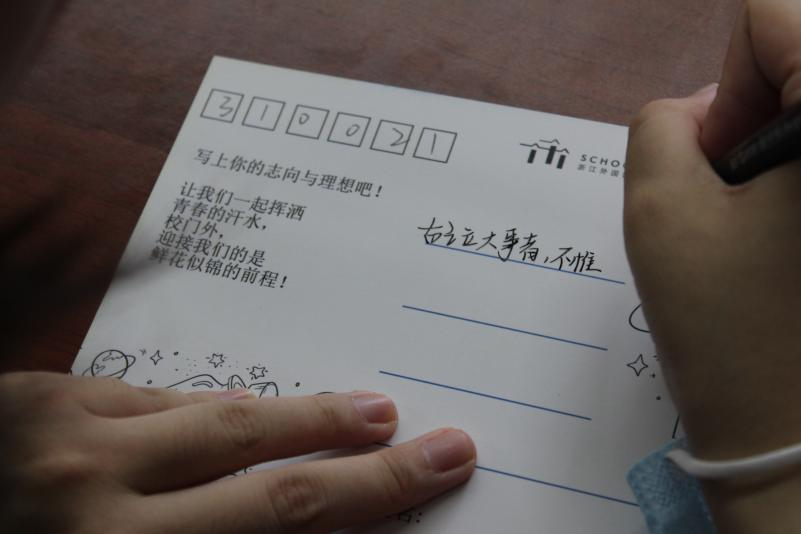 310021
SCHOO
浙江外国
写上你的志向与理想吧！
让我们一起挥洒
青春的汗水，
校门外，
迎接我们的是
鲜花似锦的前程！
古之立大事者，不惟
名：